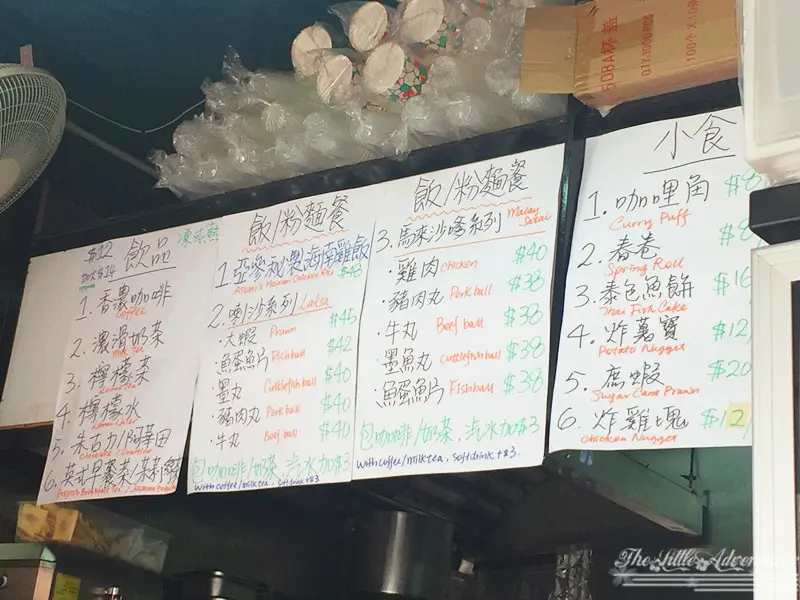 SOBA杯蓋
100个 X10條
$12
飲品
凍或熱
1. 香濃咖啡
Coffee
2. 濃滑奶茶
Milk Tea
3. 檸檬茶
Lemon Tea
4. 檸檬水
Lemon Water
5. 朱古力/阿華田
6. 英式早餐茶/茉莉
English Breakfast Tea
飯/粉麵餐
1. 亞參秘製海南雞飯
Assam's Hainan Chicken Rice $48
2. 喇沙系列 Laksa
· 大蝦 Prawn $45
· 魚蛋魚片 Fishball $42
· 墨丸 Cuttlefish ball $40
· 豬肉丸 Pork ball $40
· 牛丸 Beef ball $40
包咖啡/奶茶．汽水加$3
with coffee/milk tea . softdrink +$3
飯/粉麵餐
3. 馬來沙嗲系列 Malay Satai
· 雞肉 chicken $40
· 豬肉丸 Pork ball $38
· 牛丸 Beef ball $38
· 墨魚丸 cuttlefish ball $38
· 魚蛋魚片 Fishball $38
包咖啡/奶茶．汽水加$3
with coffee/milk tea . softdrink +$3.
小食
1. 咖哩角 $8
Curry Puff
2. 春卷 $8
Spring Roll
3. 泰色魚餅 $16
Thai Fish Cake
4. 炸薯寶 $12
Potato Nugget
5. 蔗蝦 $20
Sugar Cane Prawn
6. 炸雞塊 $12
Chicken Nugget
The Little Adventurer